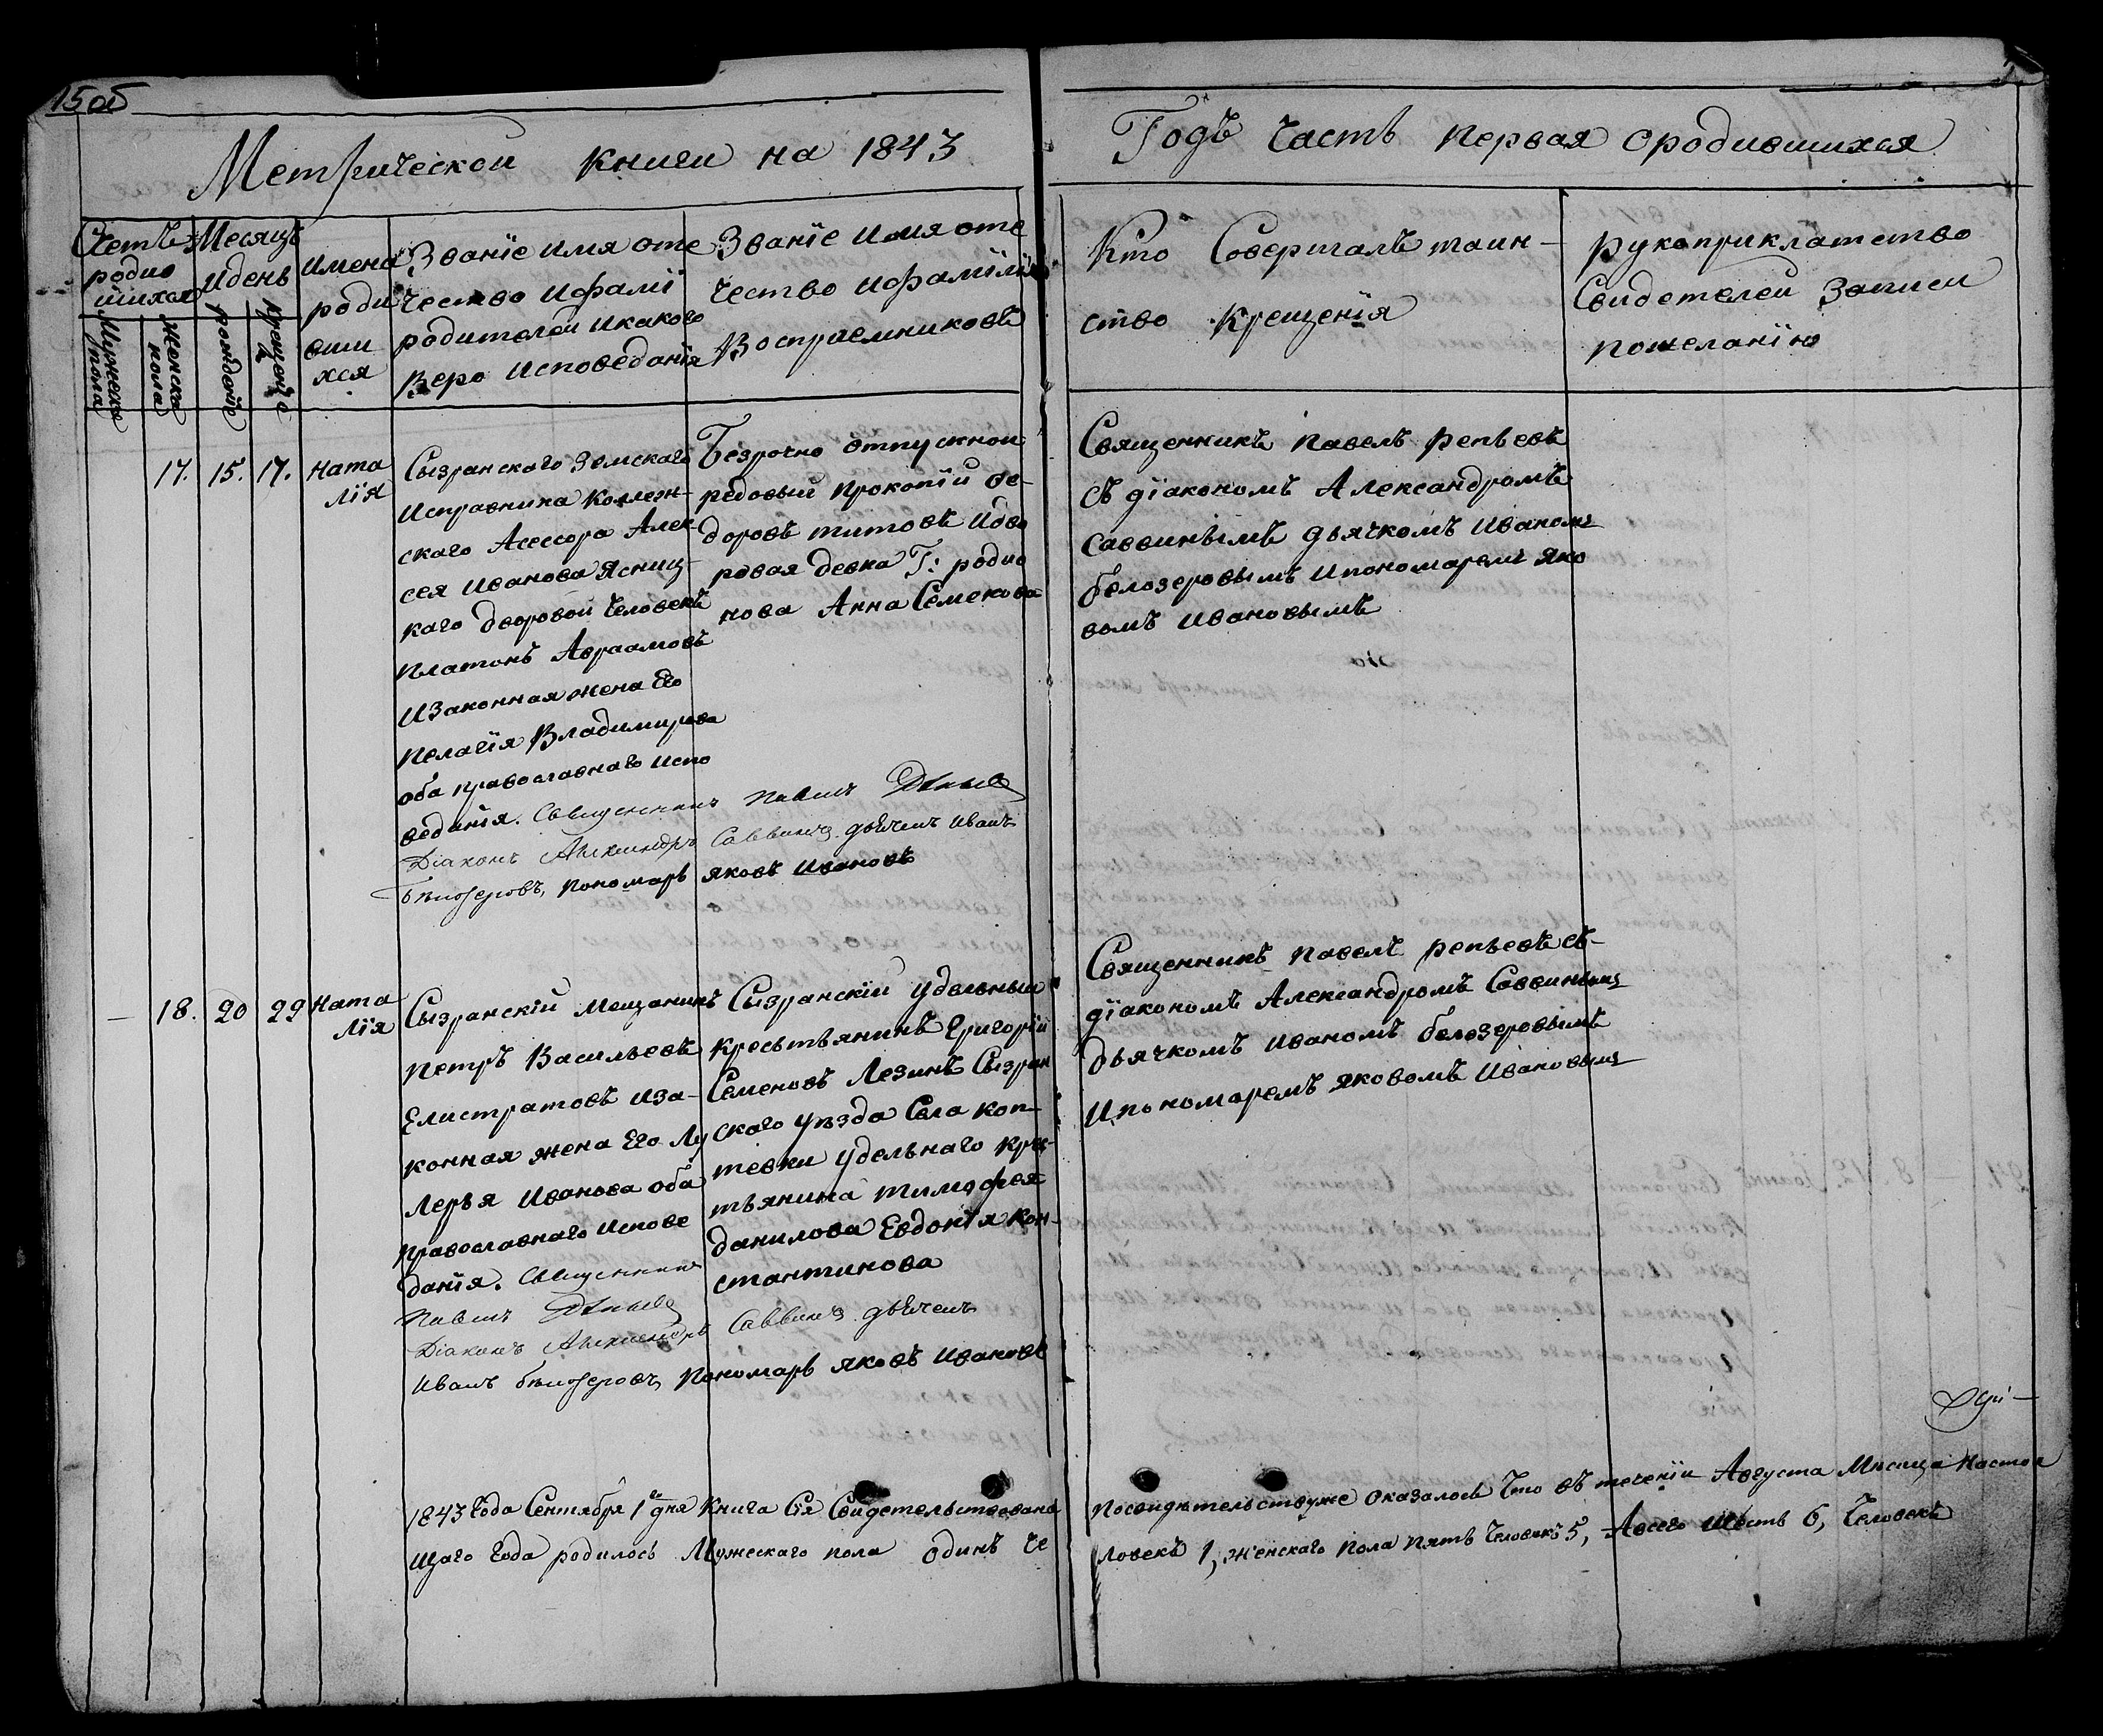 15 об
Метрической книги на 1843
Годъ часть первая ородившихся
Счетъ
родив
шихся
Мужеска
пола
Женска
пола
Месяцъ
и день
рождение
крещение
Имена
роди
вши
хся
Званїе имя оте
чество ифамї
родителей икаково
веро исповеданїя
Званїе имя оте
чество ифамїлїя
Восприемниковъ
Кто Совершалъ таин-
ство крещенїя
рукоприклатство
Свидетелей записи
пожеланїю
17. 15. 17. Ната
лїя
Сызранскаго Земскаго
исправника Коллеж-
скаго Асессора Алек-
сея Иванова Ясниц-
каго дворовой человекъ
Платонъ Авраамовъ
изаконная жена Его
Пелагїя Владимирова
оба православнаго испо
веданїя. Священникъ Павелъ
Дїаконъ Александръ Саввинъ дьячекъ Иванъ
Белозеровъ, пономарь яковъ Ивановъ
Безрочно отпускной
редовый Прокопїй Фе-
доровъ титовъ идво
ровая девка Г: родио
нова Анна Семенова
Священникъ павелъ репьевъ
съ дїакономъ Александромъ
Саввинымъ дьячкомъ иваномъ
белозеровымъ ипономаремъ яко
вомъ ивановымъ
18. 20 29 Ната
лїя
Сызранскїй мещанинъ
Петръ Васильевъ
Елистратовъ иза-
конная жена Его Лу
Лерья Иванова оба
православнаго испове
данїя. Священникъ
Павелъ
Дїаконъ Александръ Саввинъ дьячекъ
Иванъ белозеровъ, Пономарь яковъ Ивановъ
Сызранскїй удельный
крестьянинъ Григорїй
Семеновъ Лезинъ Сызран
скаго уезда Села коп-
тевки удельнаго крес-
тьянина тимофея
данилова Евдокїя кон-
стантинова
Священникъ павелъ репьевъ съ-
дїакономъ Александромъ Саввинымъ
дьячкомъ иваномъ белозеровымъ
ипономаремъ яковомъ ивановымъ
1843 года Сентября 1 дня Книга Сїя Свидетельствована
Посвидетельствуже оказалось что въ теченїи Августа Месяца Настоя
щаго года родилось Мужескаго пола один че
ловекъ 1, женскаго пола пять человекъ 5, Авсего Шесть 6, человекъ